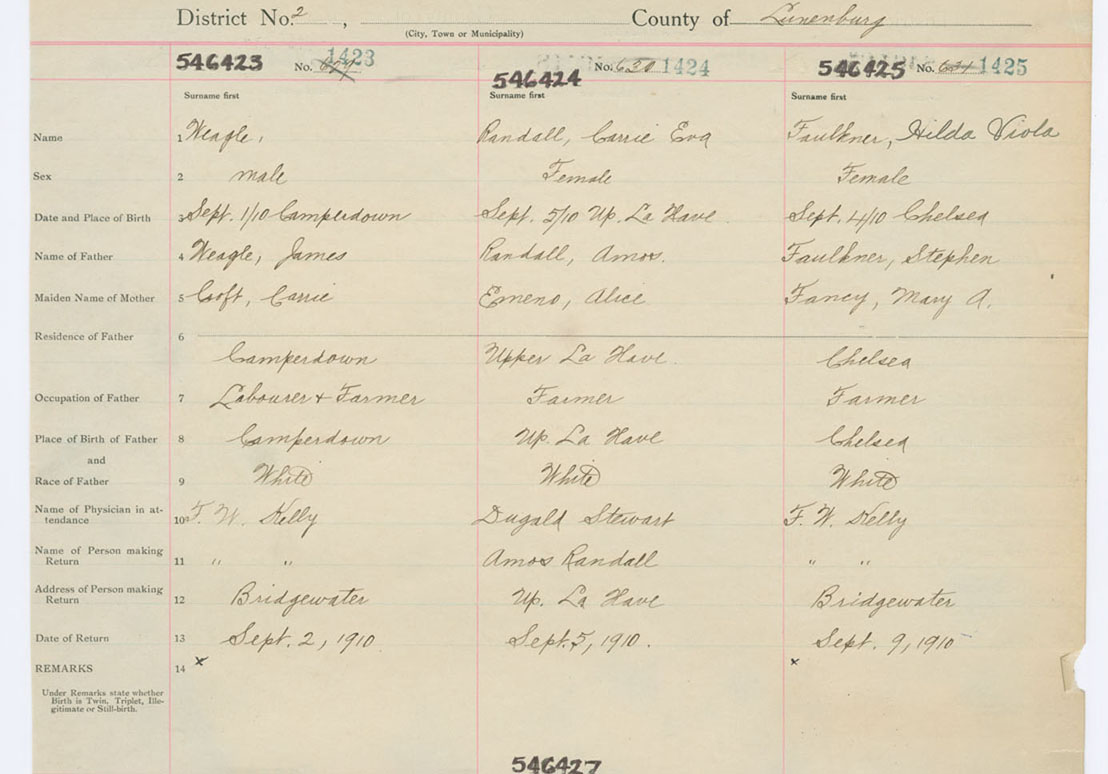 District No. 2 , County of Lunenburg
(City, Town or Municipality)
546423 No. 1423 546424 No. 630 1424 546425 No. 631 1425
Surname first Surname first Surname first
Name 1 Weagle, Randall, Carrie Eva Faulkner, Hilda Viola
Sex 2 male Female Female
Date and Place of Birth 3 Sept. 1/10 Camperdown Sept. 5/10 Up. La Have Sept. 4/10 Chelsea
Name of Father 4 Weagle, James Randall, Amos. Faulkner, Stephen
Maiden Name of Mother 5 Croft, Carrie Emeno, Alice Fancy, Mary A.
Residence of Father 6
Camperdown Upper La Have. Chelsea
Occupation of Father 7 Labourer + Farmer Farmer Farmer
Place of Birth of Father 8 Camperdown Up. La Have Chelsea
and
Race of Father 9 White White White
Name of Physician in at-
tendance 10 F. W. Kelly Dugald Stewart F. W. Kelly
Name of Person making
Return 11 " " Amos Randall " "
Address of Person making
Return 12 Bridgewater Up. La Have Bridgewater
Date of Return 13 Sept. 2, 1910 Sept. 5, 1910. Sept. 9, 1910
REMARKS 14 x x
Under Remarks state whether
Birth is Twin, Triplet, Ille-
gitimate or Still-birth.
546427